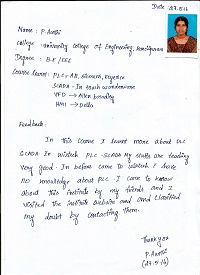 Date: 27.5.16
Name : P. Aarthi
College : University College of Engineering, Ramanathapuram
Degree : B.E / EEE
Course learnt : PLC → AB, Siemens, Keyence
SCADA - In touch wonderware
VFD → Allen bradley
HMI → Delta
Feedback:
In this course I learnt more about PLC
SCADA. In wintech PLC - SCADA my staffs are teaching
very good. In before came to wintech I have
no knowledge about PLC. I came to know
about this institute by my friends and I
visited the institute website and and clarified
my doubt by contacting them.
Thank you
P. Aarthi
(27.5.16)